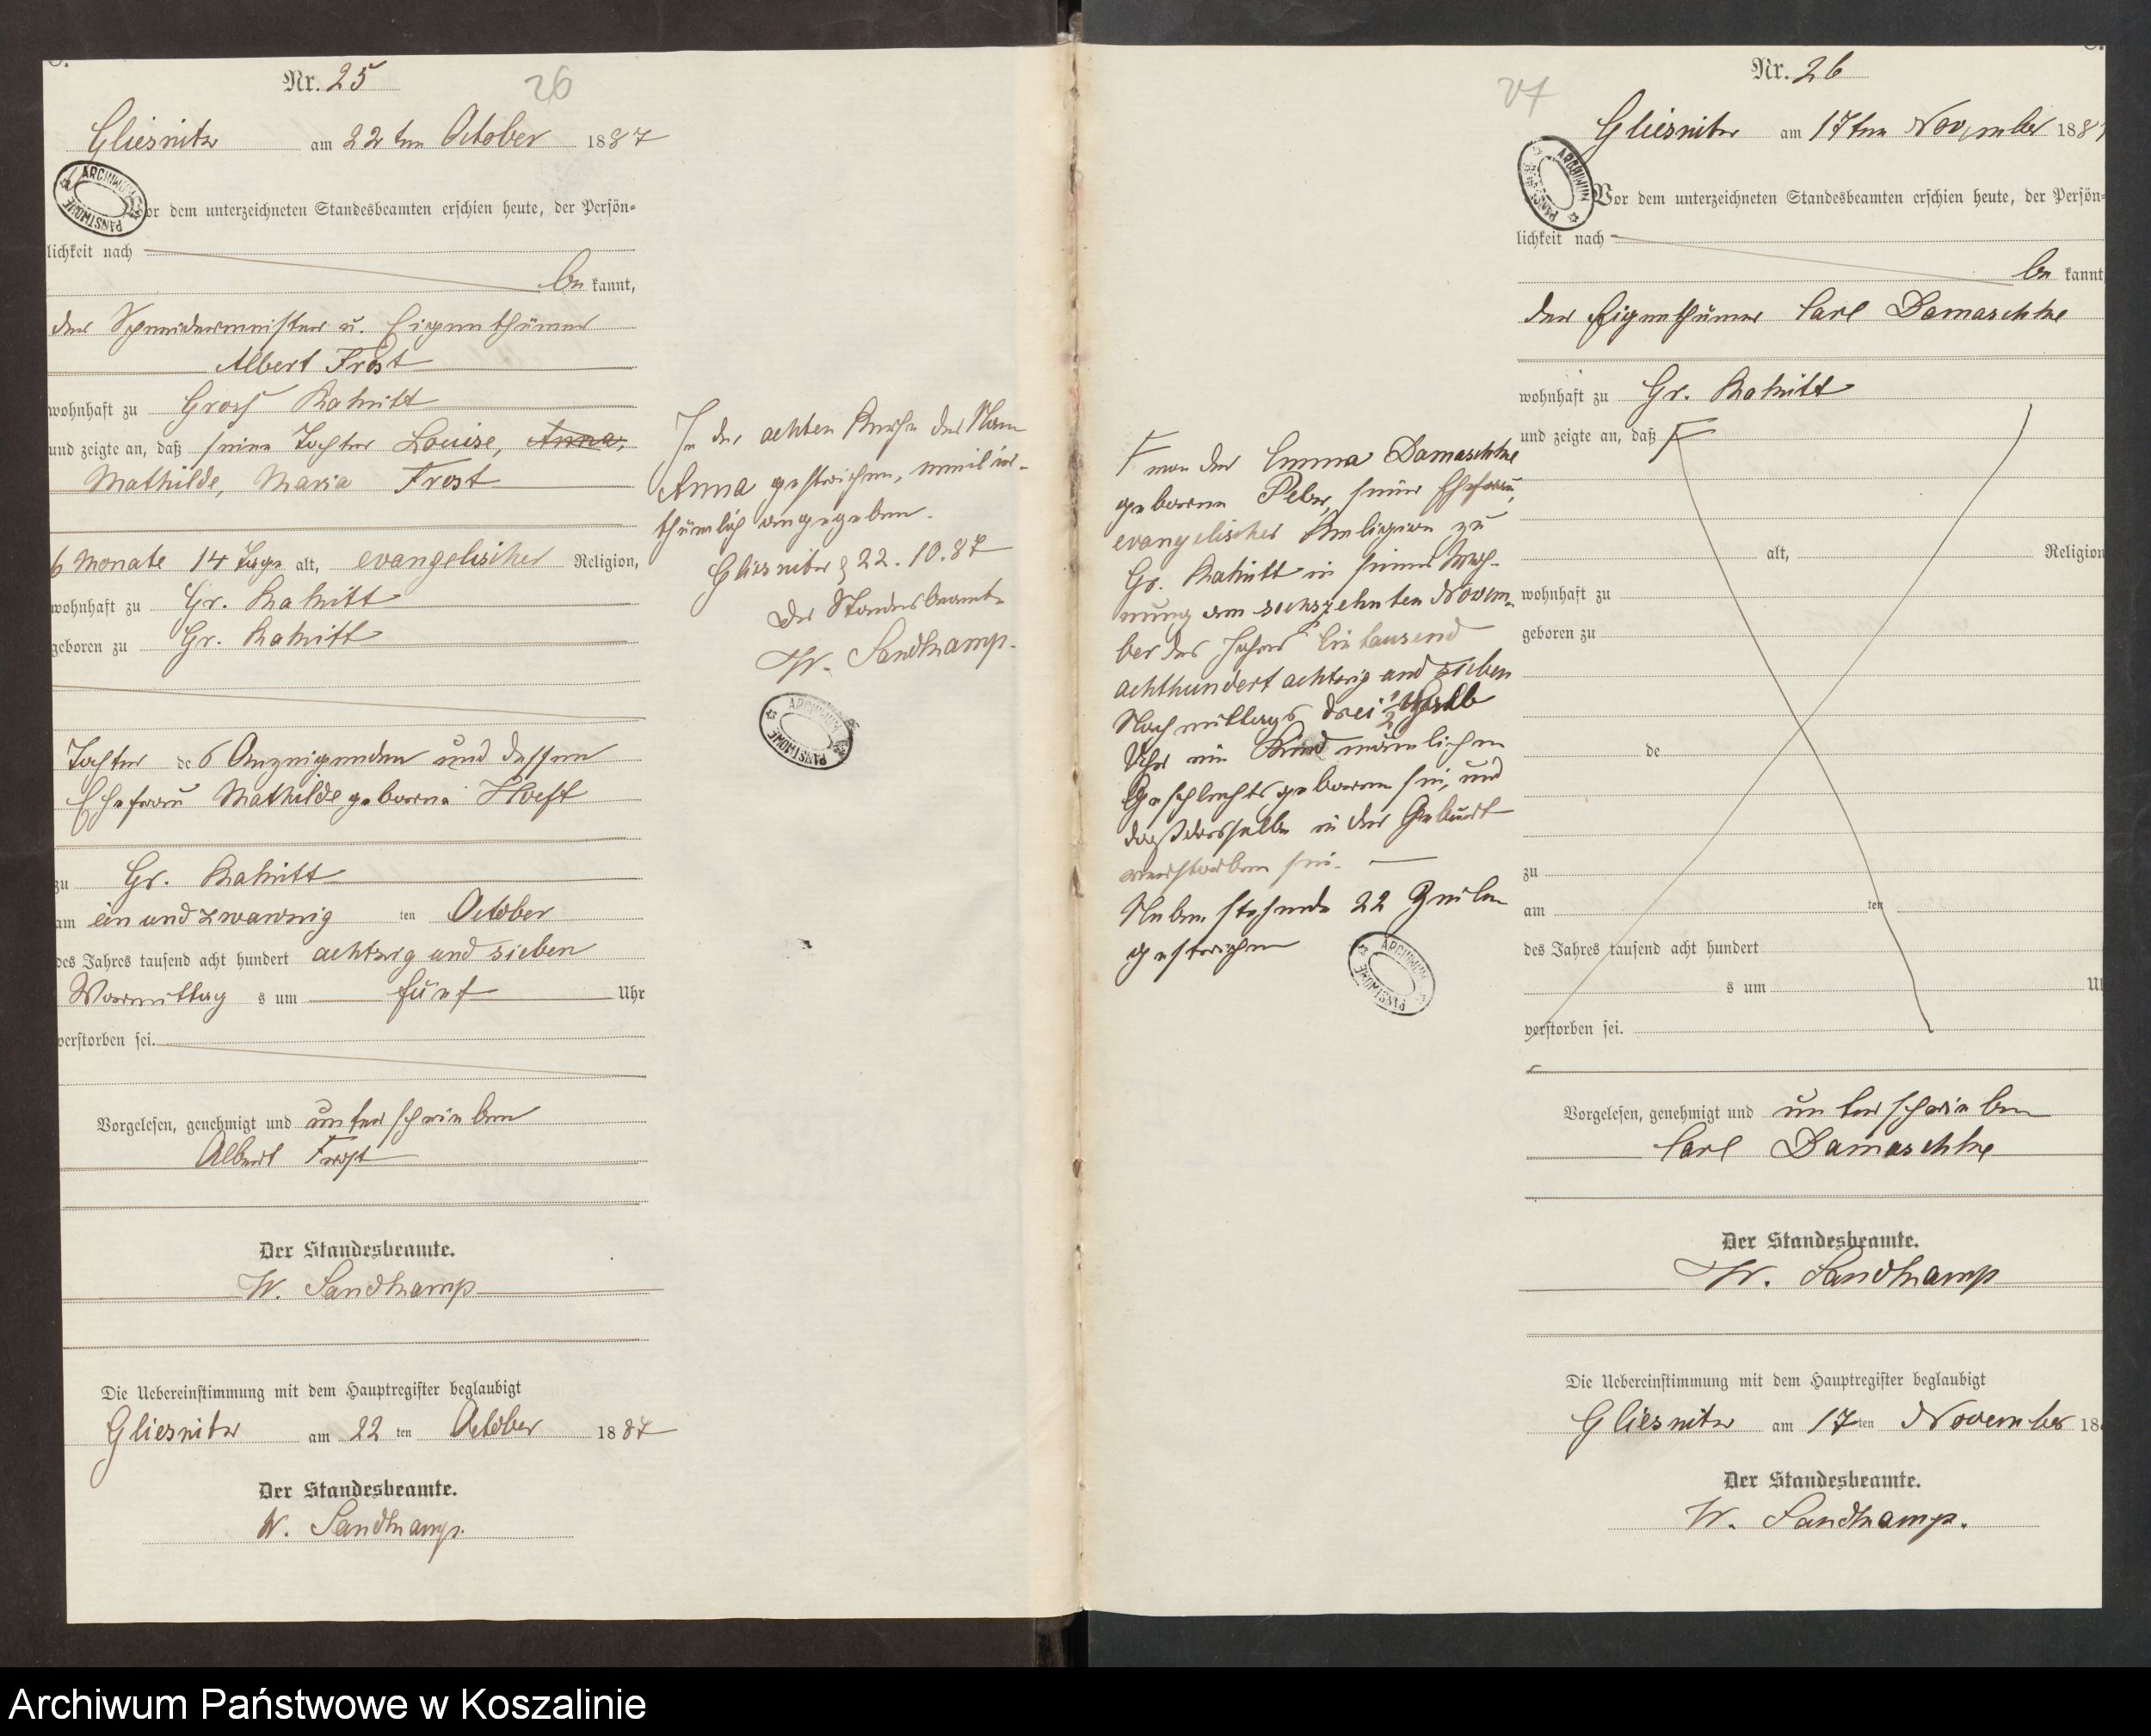 Nr. 25
26
Gliesnitz am 22ten October 1887
Vor dem unterzeichneten Standesbeamten erschien heute, der Persön-
lichkeit nach
be kannt,
der Schneidermeister u. Eigenthümer
Albert Frost
wohnhaft zu Gross Rakitt
und zeigte an, daß seine Tochter Louise, Anna,
Mathilde, Maria Frost
6 Monate 14 Tage alt, evangelischer Religion,
wohnhaft zu Gr. Rakitt
geboren zu Gr. Rakitt
Tochter des Anzeigenden und dessen
Ehefrau Mathilde geborne Hoeft
zu Gr. Rakitt
am ein und zwanzig ten October
des Jahres tausend acht hundert achtzig und sieben
Vormittag s um fünf Uhr
verstorben sei.
Vorgelesen, genehmigt und unterschrieben
Albert Frost
Der Standesbeamte.
W. Sandkamp
Die Uebereinstimmung mit dem Hauptregister beglaubigt
Gliesnitz am 22 ten October 1887
Der Standesbeamte.
W. Sandkamp.
In der achten Reihe der Name
Anna gestrichen, weil irr-
thümlich angegeben.
Gliesnitz 22.10.87
Der Standesbeamte
W. Sandkamp.
ARCHIWUM PAŃSTWOWE
ARCHIWUM PAŃSTWOWE
Nr. 26
27
Gliesnitz am 17ten November 188
Vor dem unterzeichneten Standesbeamten erschien heute, der Persön-
lichkeit nach
be kannt
der Eigenthümer Carl Damaschke
wohnhaft zu Gr. Rakitt
und zeigte an, daß
alt, Religion
wohnhaft zu
geboren zu
de
zu
am ten
des Jahres tausend acht hundert
s um U
verstorben sei.
Vorgelesen, genehmigt und unterschrieben
Carl Damaschke
Der Standesbeamte.
W. Sandkamp
Die Uebereinstimmung mit dem Hauptregister beglaubigt
Gliesnitz am 17 ten November 18
Der Standesbeamte.
W. Sandkamp.
von der Emma Damaschke
geborne seiner Ehefrau,
evangelischer Religion zu
Gr. Rakitt in seiner Woh-
nung am sechszehnten Novem-
ber des Jahres Eintausend
achthundert achtzig und sieben
Nachmittags drei 1/2 halb
Uhr ein Kind männlichen
Geschlechts geboren sei, und
daß dasselbe in der Geburt
verstorben sei.
Nebenstehende 22 Zeilen
gestrichen
ARCHIWUM PAŃSTWOWE
ARCHIWUM PAŃSTWOWE
Archiwum Państwowe w Koszalinie